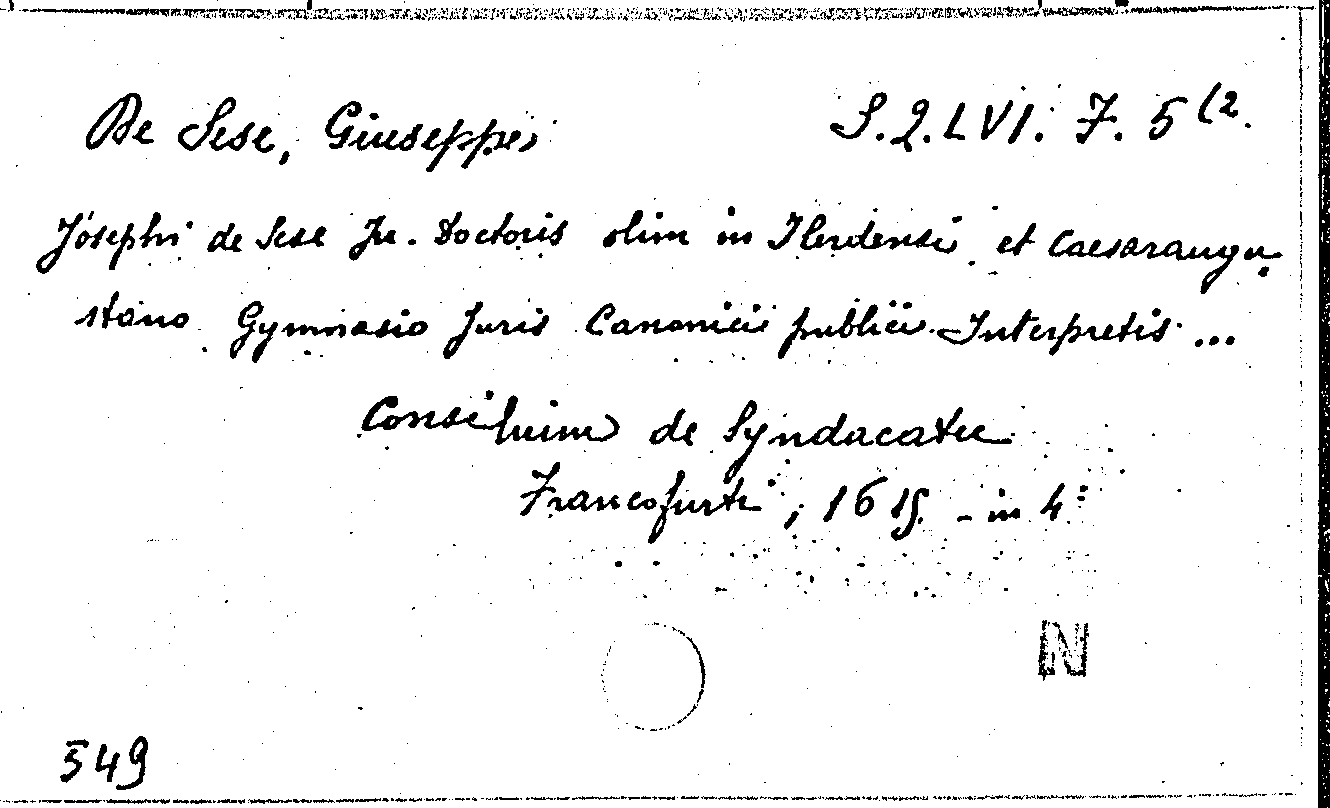 De Sese, Giuseppe S.Q.LVI. F. 5 (2.
Josephi de Sese Ju. Doctoris olim in Ilerdensi et Caesaraugu-
stano Gymnasio Juris Canonici publici Interpretis ...
Consilium de Syndacatu
Francofurti, 1615. - in 4°
N
549